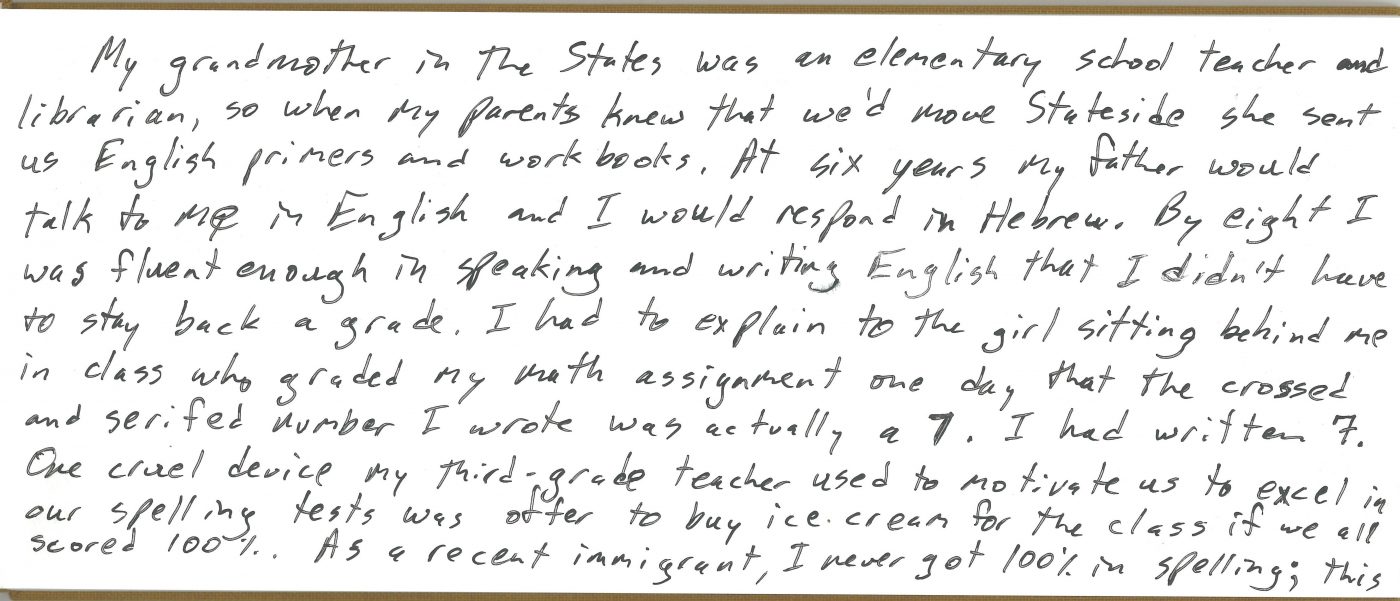 My grandmother in the States was an elementary school teacher and
librarian, so when my parents knew that we'd move Stateside she sent
us English primers and workbooks. At six years my father would
talk to me in English and I would respond in Hebrew. By eight I
was fluent enough in speaking and writing English that I didn't have
to stay back a grade. I had to explain to the girl sitting behind me
in class who graded my math assignment one day that the crossed
and serifed number I wrote was actually a 7. I had written 7.
One cruel device my third-grade teacher used to motivate us to excel in
our spelling tests was offer to buy ice cream for the class if we all
scored 100%. As a recent immigrant, I never got 100% in spelling; this